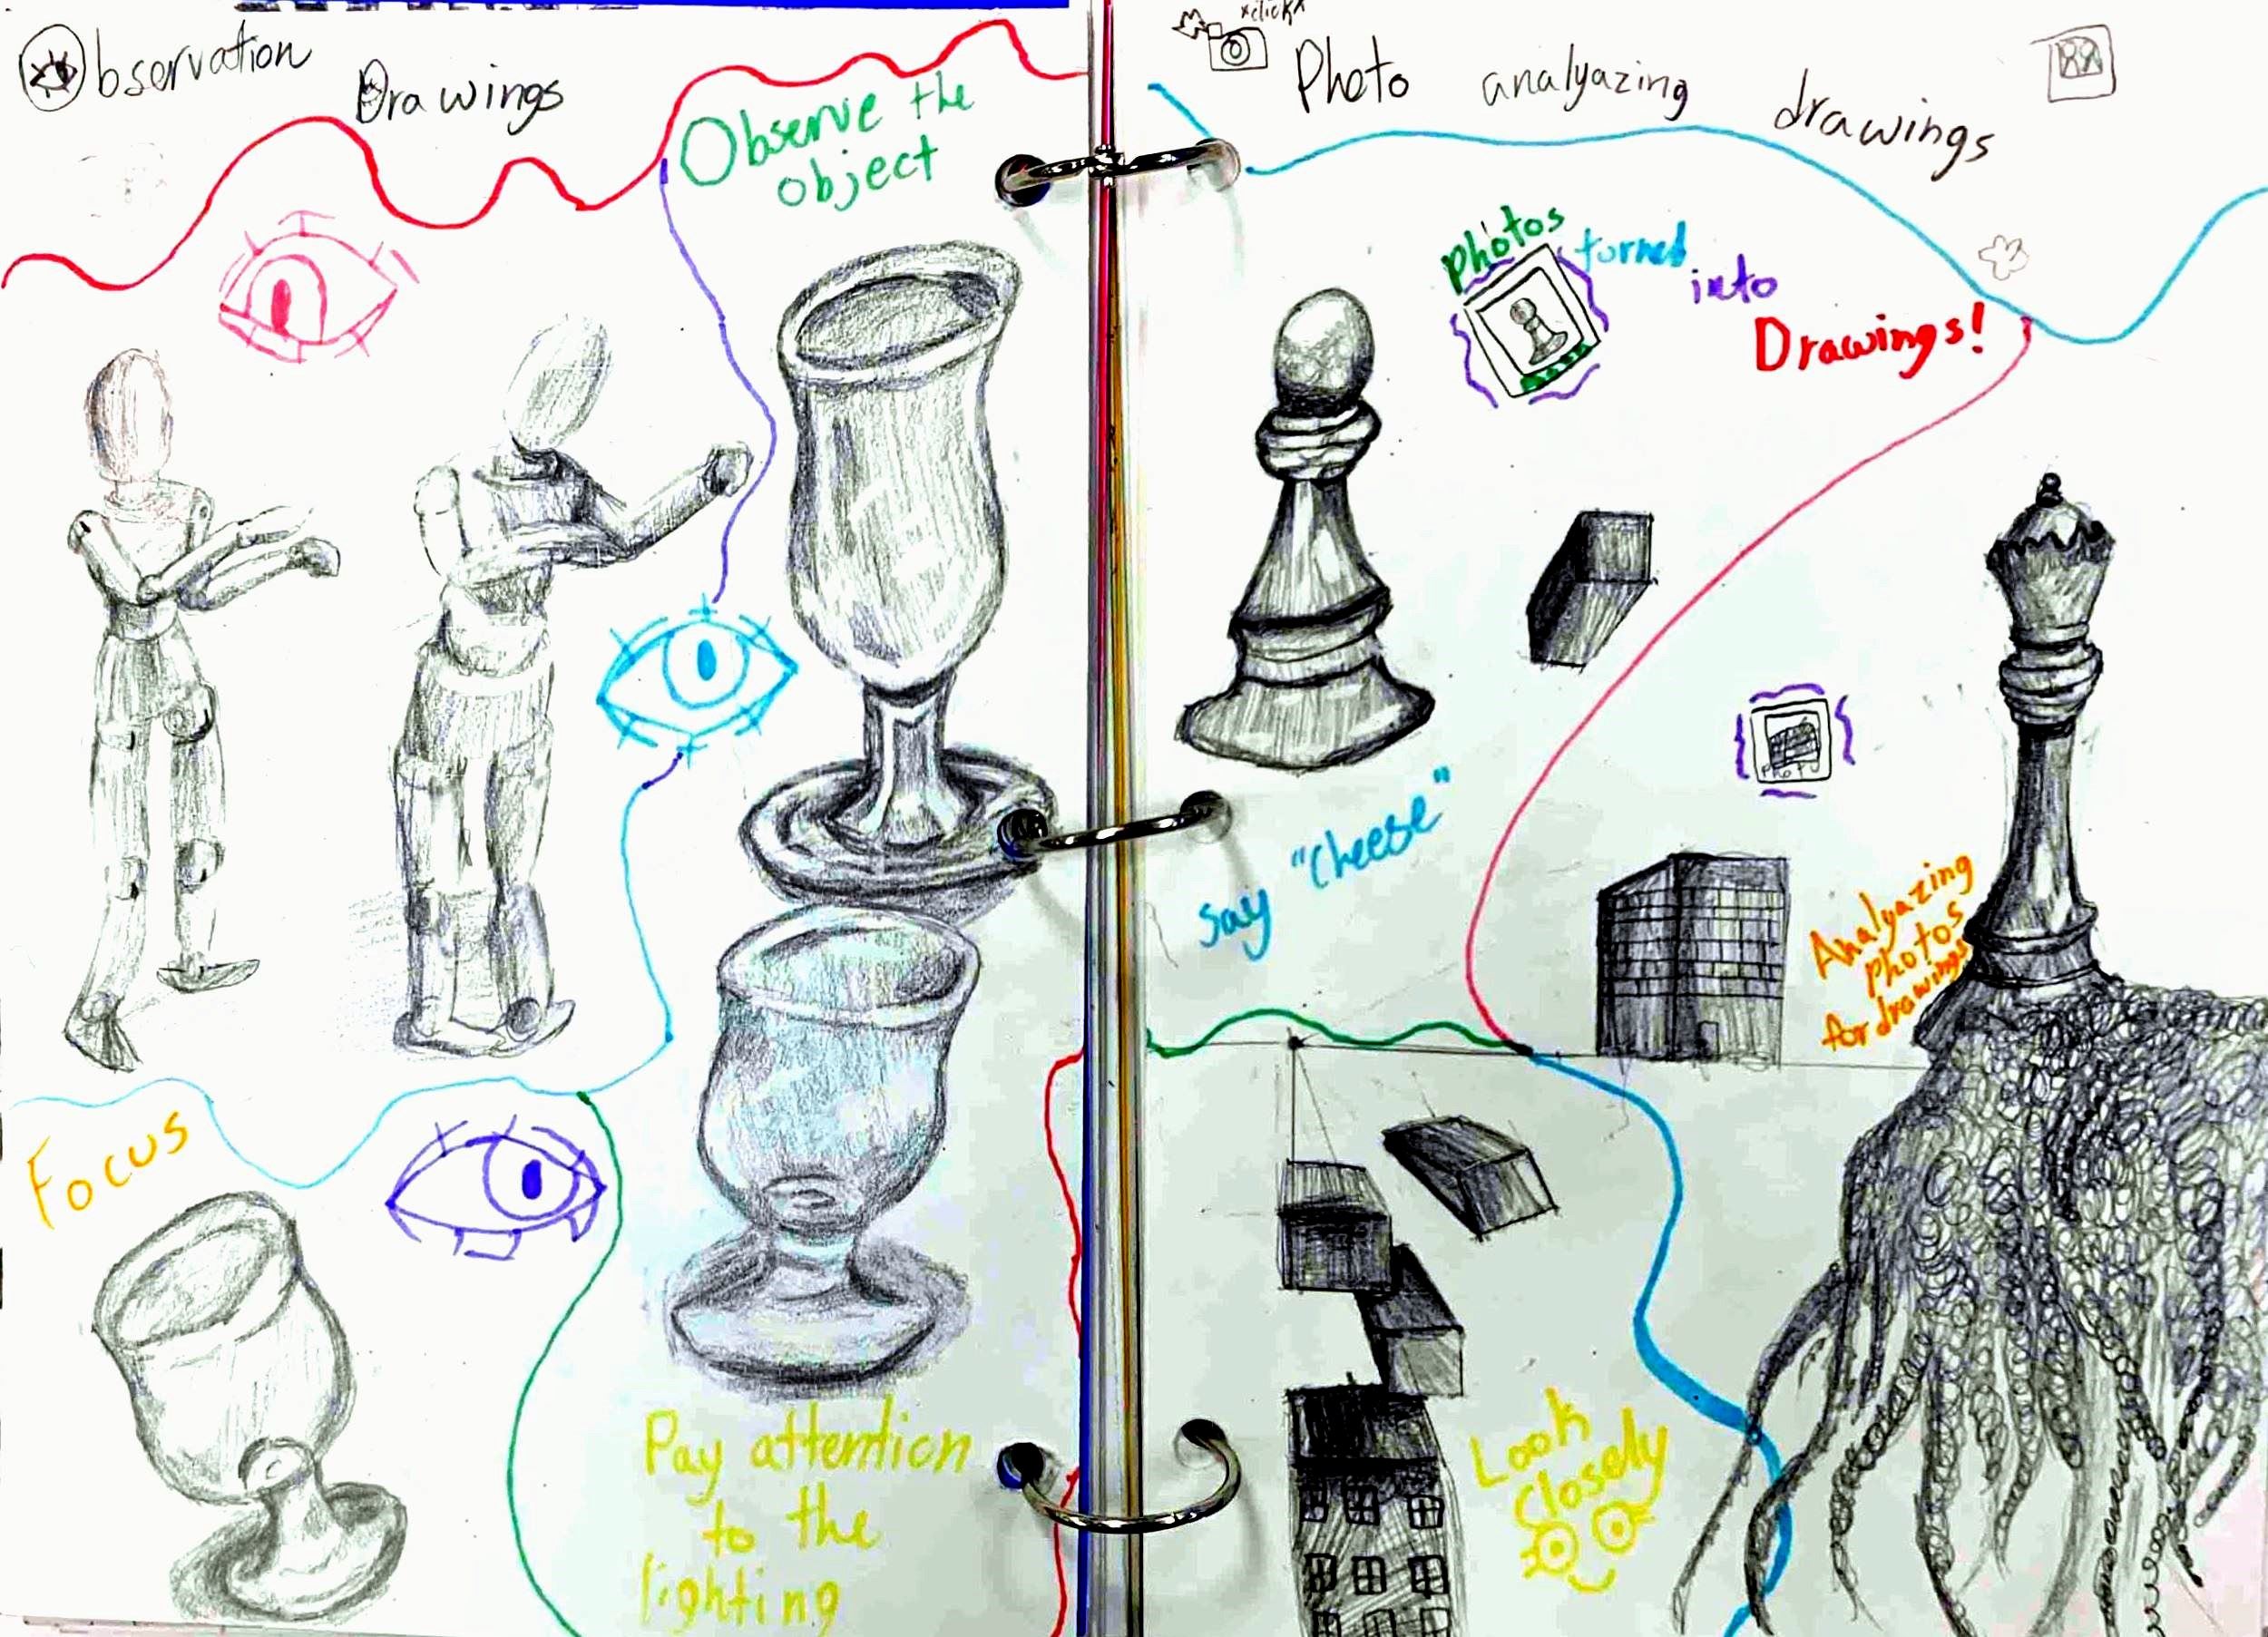 Observation
Drawings
Observe the
object
Focus
Pay attention
to the
lighting
*click*
Photo analyazing drawings
Photos turned into
Drawings!
Say "Cheese"
PHOTO
Analyazing
photos
for drawings
Look
Closely